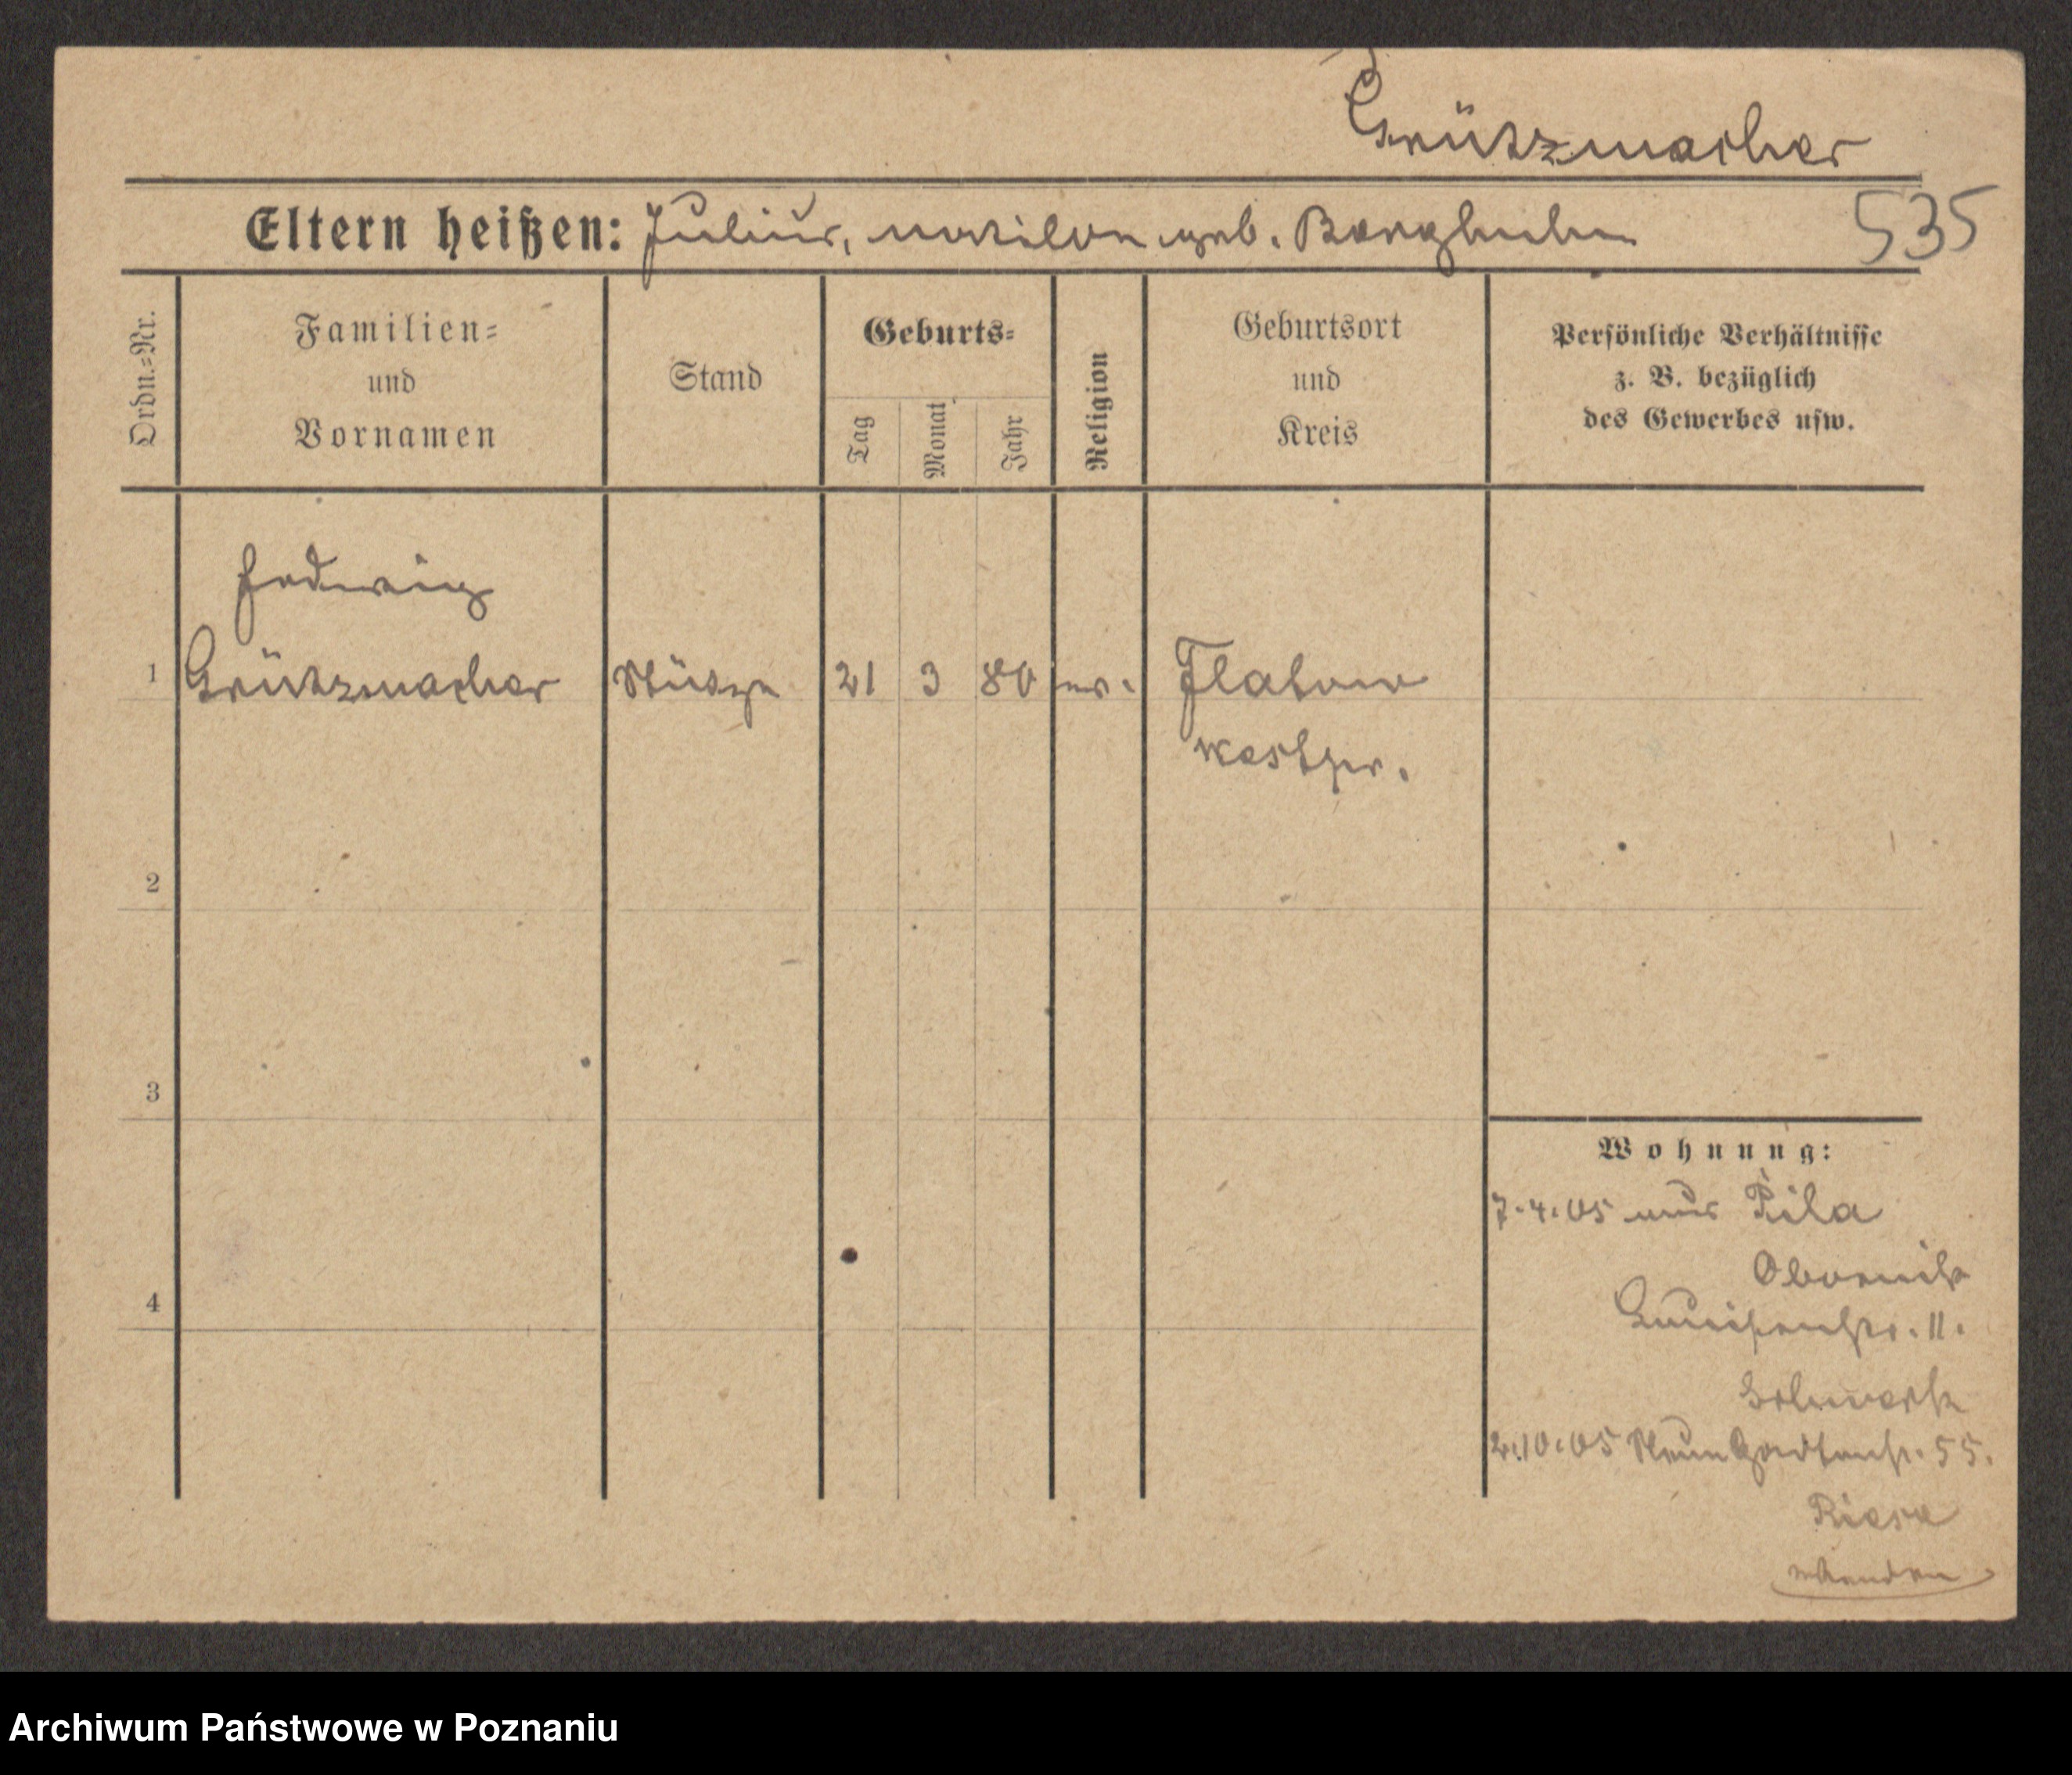 Grützmacher
Eltern heißen: Julius, geb. 535
Ordn.=Nr.
Familien=
und
Vornamen
Stand
Geburts=
Tag
Monat
Jahr
Religion
Geburtsort
und
Kreis
Persönliche Verhältnisse
z. B. bezüglich
des Gewerbes usw.
Hedwig
1 Grützmacher Stütze 21 3 80 ev. Flatow
Westpr.
2
3
Wohnung:
7.4.05 aus Pila
Obornik
4
Louisenstr. 11.
2.10.05 Neue Gartenstr. 55.
wenden
Archiwum Państwowe w Poznaniu